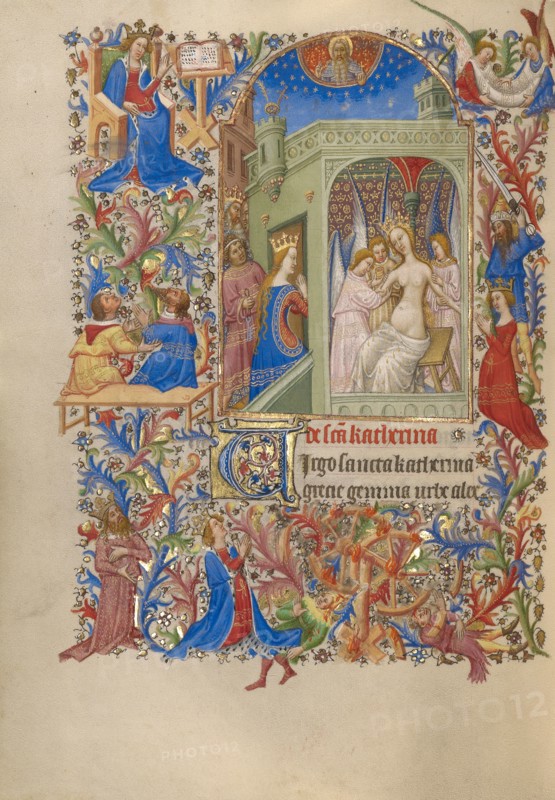 De sc̄a katherina
Virgo sancta katherina
grecie gemma urbe alex
PHOTO12
PHOTO12